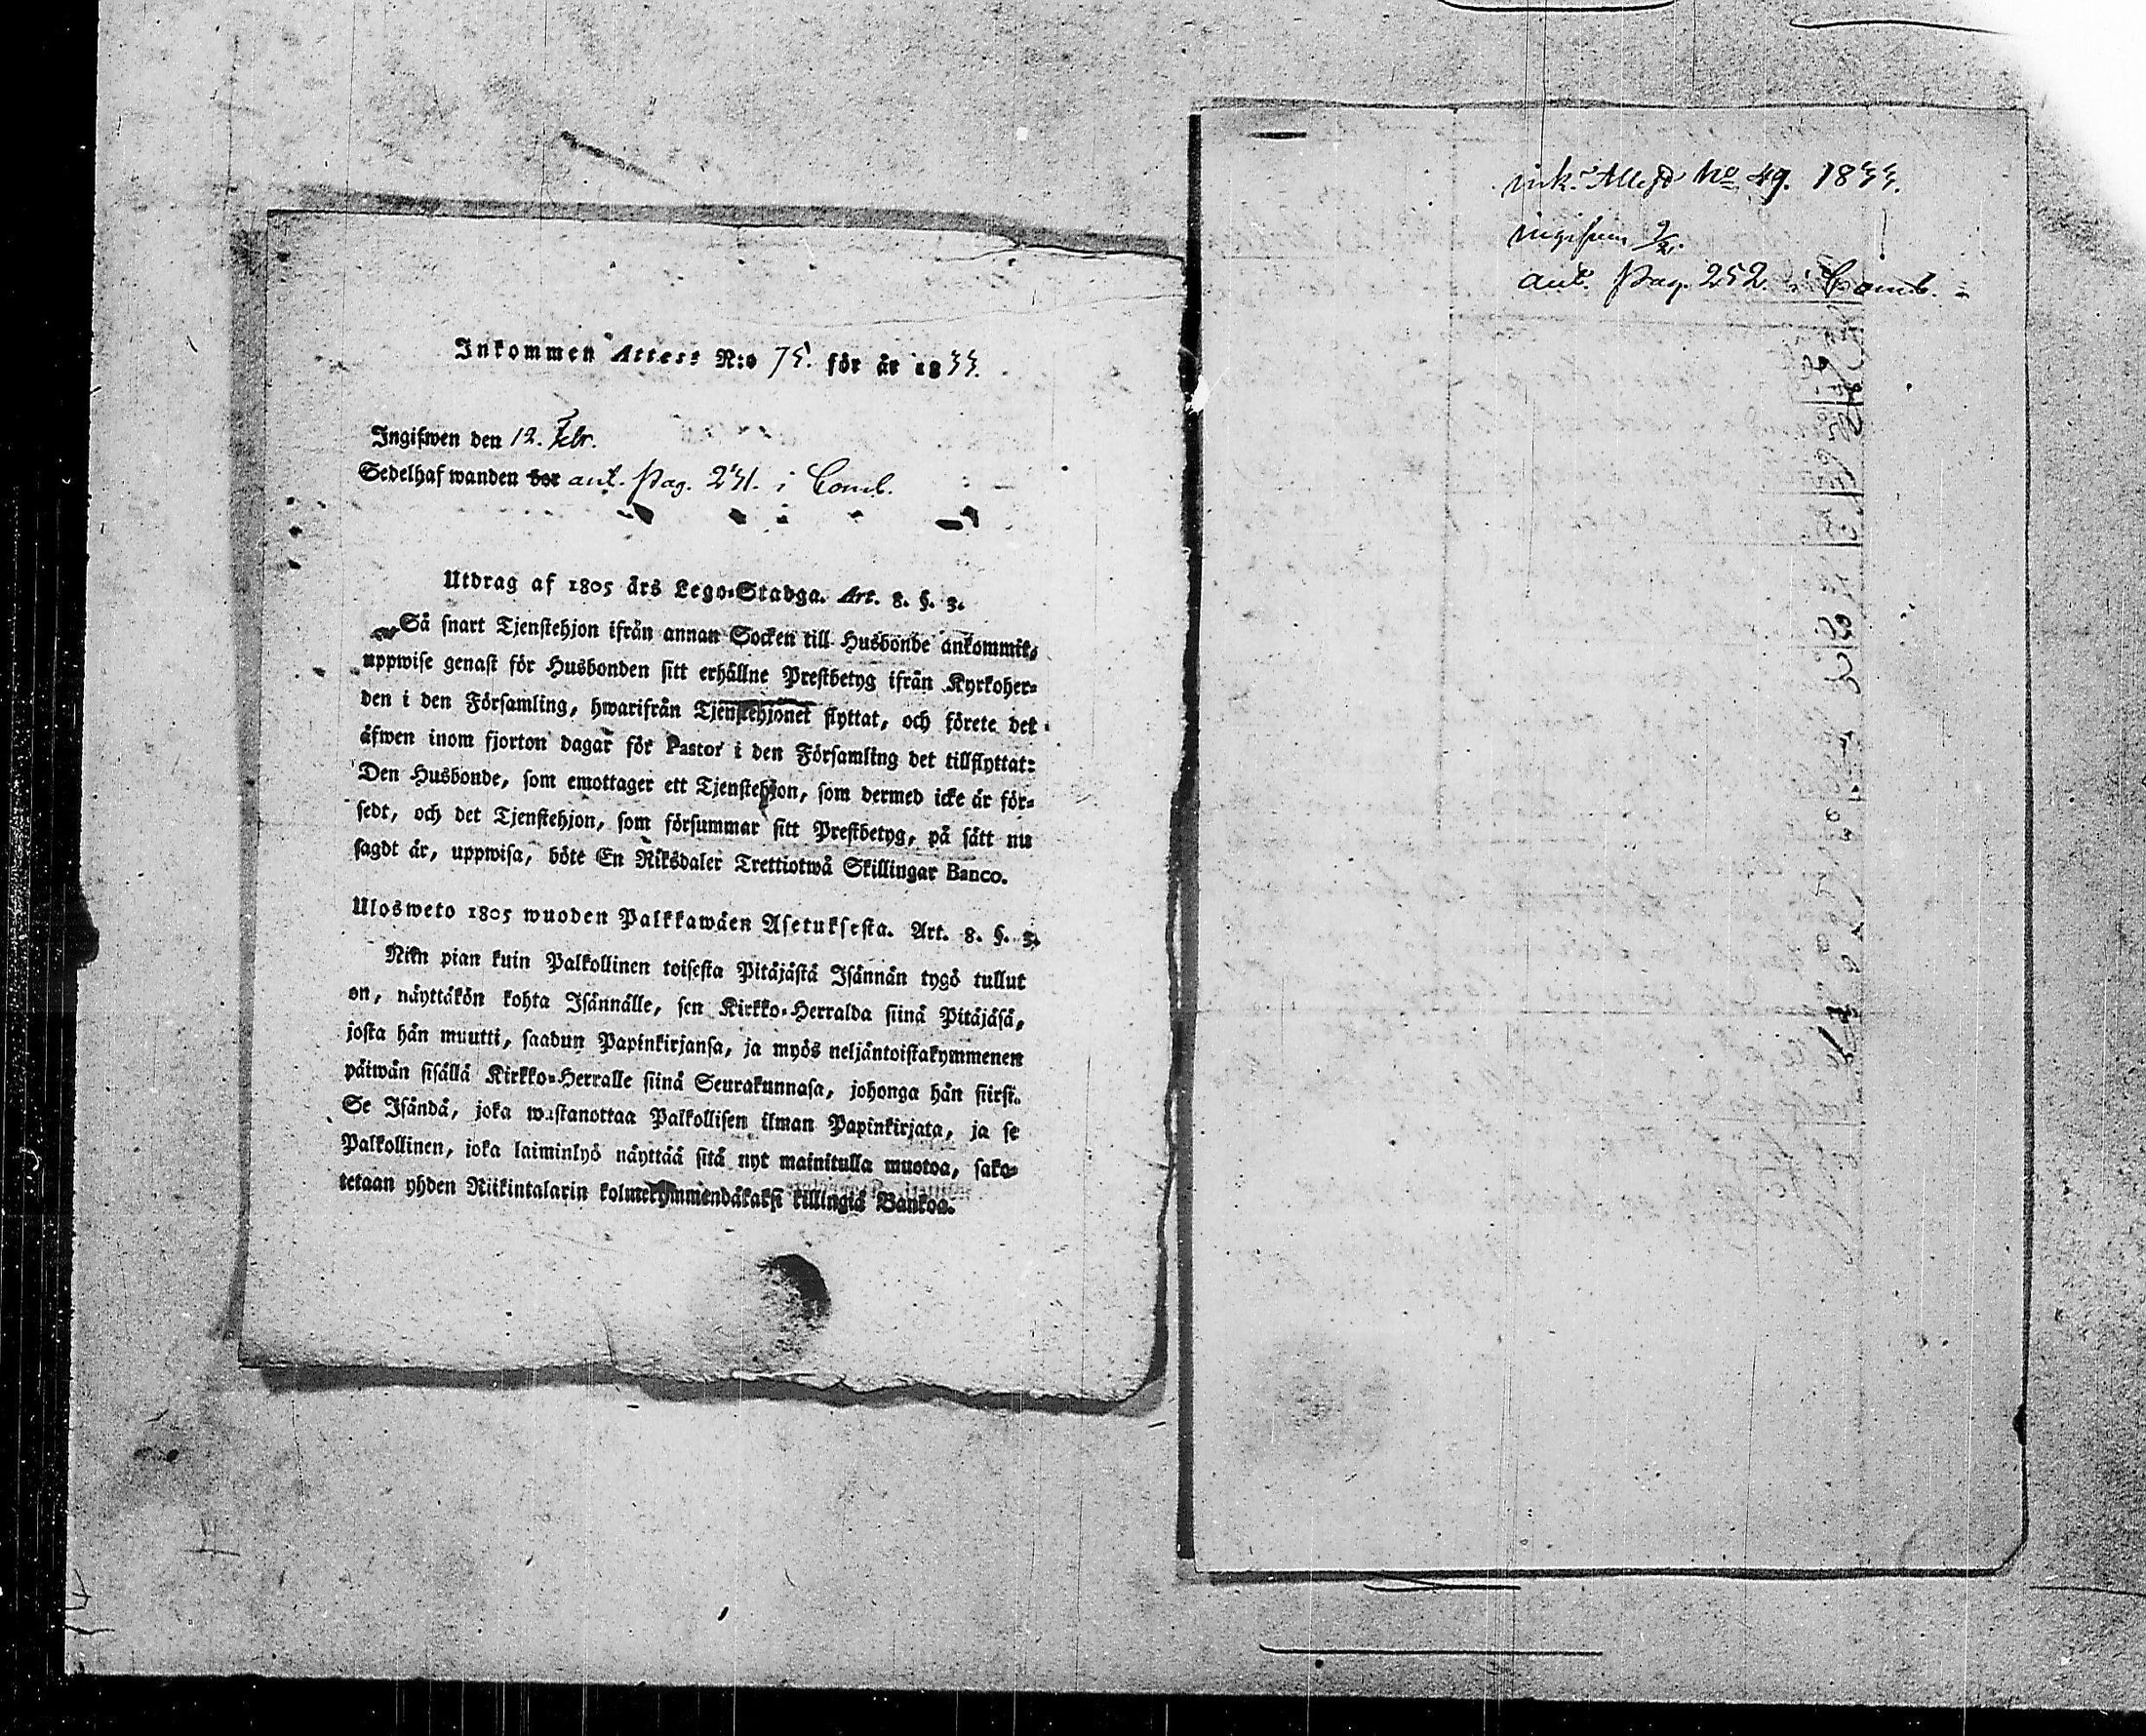 Inkommen Attest N:o 75. för år 1833.
Ingifwen den 12. Febr.
Sedelhafwanden bor ant. pag. 231. i Comb.
Utdrag af 1805 års Lego-Stadga. Art. 8. §. 3.
Så snart Tjenstehjon ifrån annan Socken till Husbonde ankommit,
uppwise genast för Husbonden sitt erhållne Prestbetyg ifrån Kyrkoher-
den i den Församling, hwarifrån Tjenstehjonet flyttat, och förete det
äfwen inom fjorton dagar för Pastor i den Församling det tillflyttat:
Den Husbonde, som emottager ett Tjenstehjon, som dermed icke är för-
sedt, och det Tjenstehjon, som försummar sitt Prestbetyg, på sätt nu
sagdt är, uppwisa, böte En Riksdaler Trettiotwå Skillingar Banco.
Ulosweto 1805 wuoden Palkkawäen Asetuksesta. Art. 8. §. 3.
Niin pian kuin Palkollinen toisesta Pitäjästä Isännän tygö tullut
on, näyttäkön kohta Isännälle, sen Kirkko-Herralda siinä Pitäjäsä,
josta hän muutti, saadun Papinkirjansa, ja myös neljäntoistakymmenen
päiwän sisällä Kirkko-Herralle siinä Seurakunnasa, johonga hän siirsi.
Se Isändä, joka wastanottaa Palkollisen ilman Papinkirjata, ja se
Palkollinen, joka laiminlyö näyttää sitä nyt mainitulla muotoa, sako-
tetaan yhden Riikintalarin kolmekymmendäkaksi killingiä Bankoa.
ink. Attest No 49. 1833.
ingifven
ant. pag. 252. i Comb.